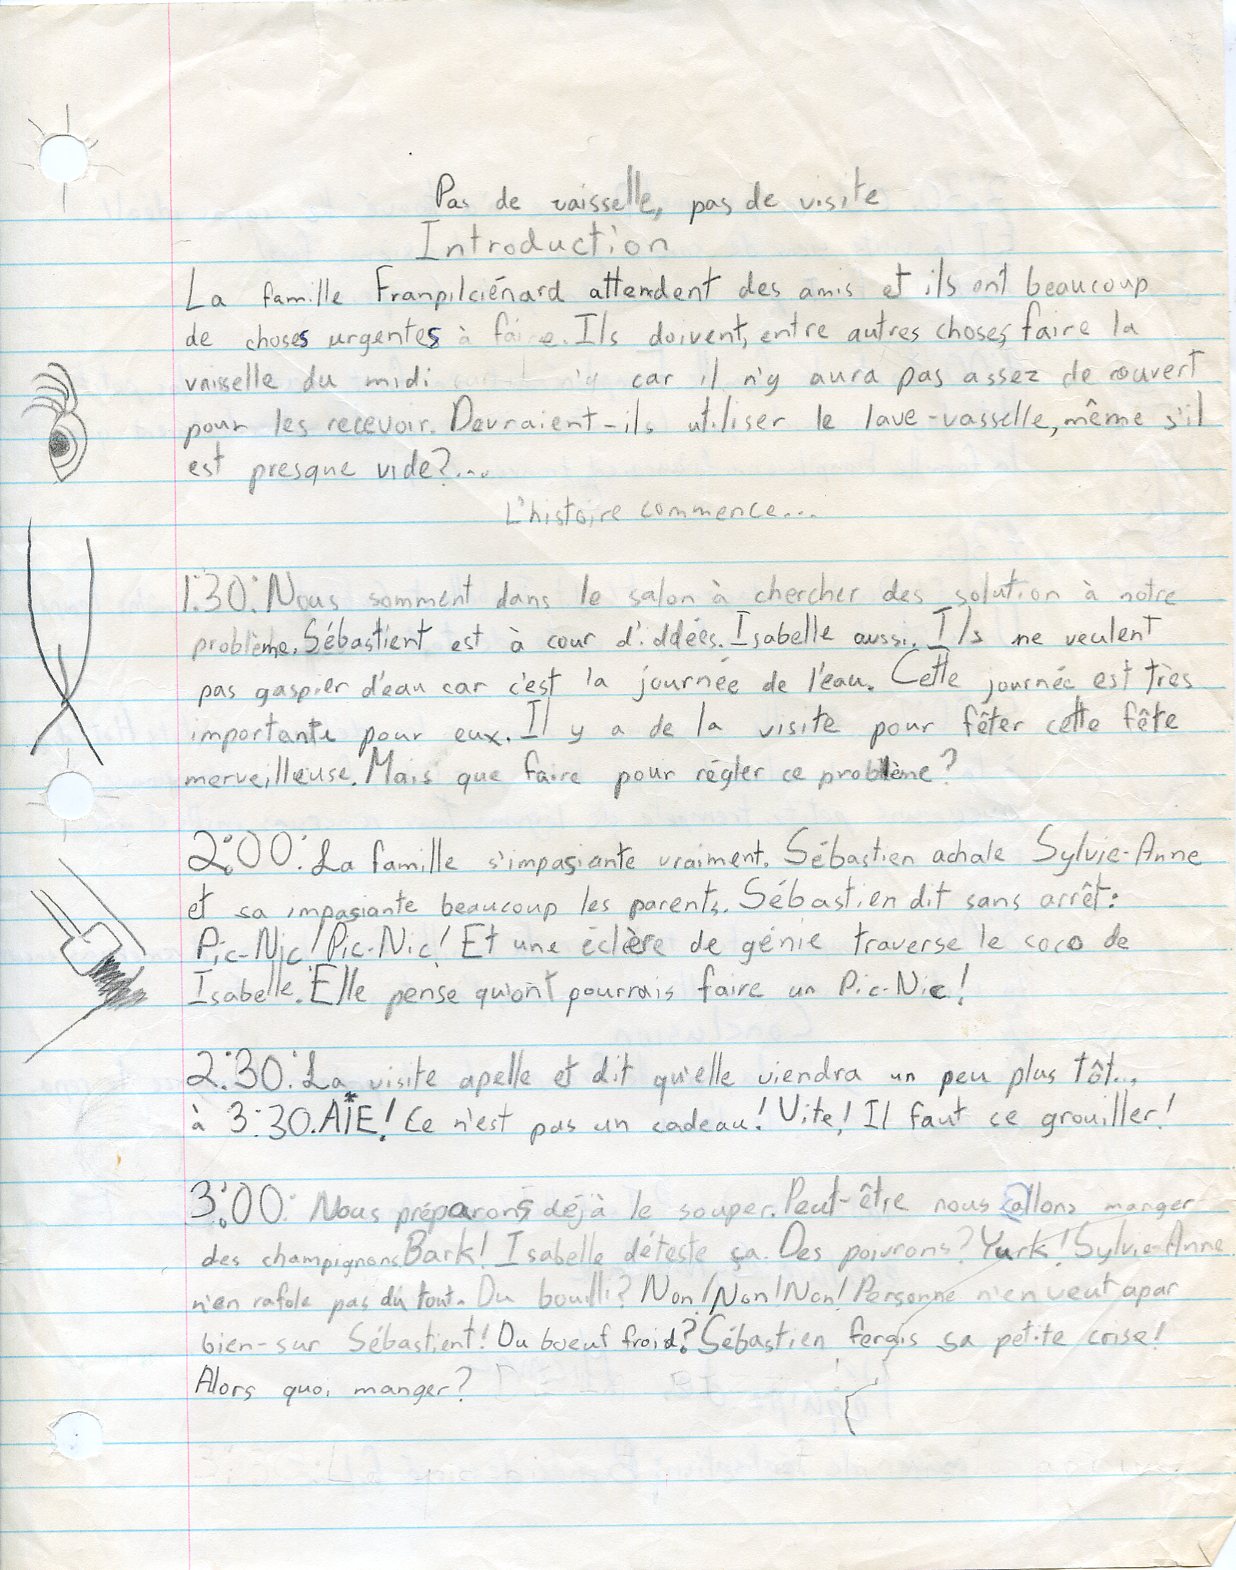 Pas de vaisselle, pas de visite
Introduction
La famille Franpilciénard attendent des amis et ils ont beaucoup
de choses urgentes à faire. Ils doivent, entre autres choses, faire la
vaisselle du midi n'y car il n'y aura pas assez de couvert
pour les recevoir. Devraient-ils utiliser le lave-vasselle, même s'il
est presque vide?...
L'histoire commence...
1:30: Nous somment dans le salon à chercher des solution à notre
problème. Sébastient est à cour d'iddées. Isabelle aussi. Ils ne veulent
pas gaspier d'eau car c'est la journée de l'eau. Cette journée est très
importante pour eux. Il y a de la visite pour fêter cette fête
merveilleuse. Mais que faire pour régler ce problème?
2:00: La famille s'impasiante vraiment. Sébastien achale Sylvie-Anne
et sa impasiante beaucoup les parents. Sébastien dit sans arrêt:
Pic-Nic! Pic-Nic! Et une éclère de génie traverse le coco de
Isabelle. Elle pense qu'ont pourrais faire un Pic-Nic!
2:30: La visite apelle et dit qu'elle viendra un peu plus tôt...
à 3:30. AÏE! Ce n'est pas un cadeau! Vite! Il faut ce grouiller!
3:00: Nous préparons déjà le souper. Peut-être nous allons manger
des champignons. Bark! Isabelle déteste ça. Des poivrons? Yurk! Sylvie-Anne
n'en rafole pas du tout. Du bouilli? Non! Non! Non! Personne n'en veut apar
bien-sur Sébastient! Du boeuf froid? Sébastien fergis sa petite crise!
Alors quoi manger?